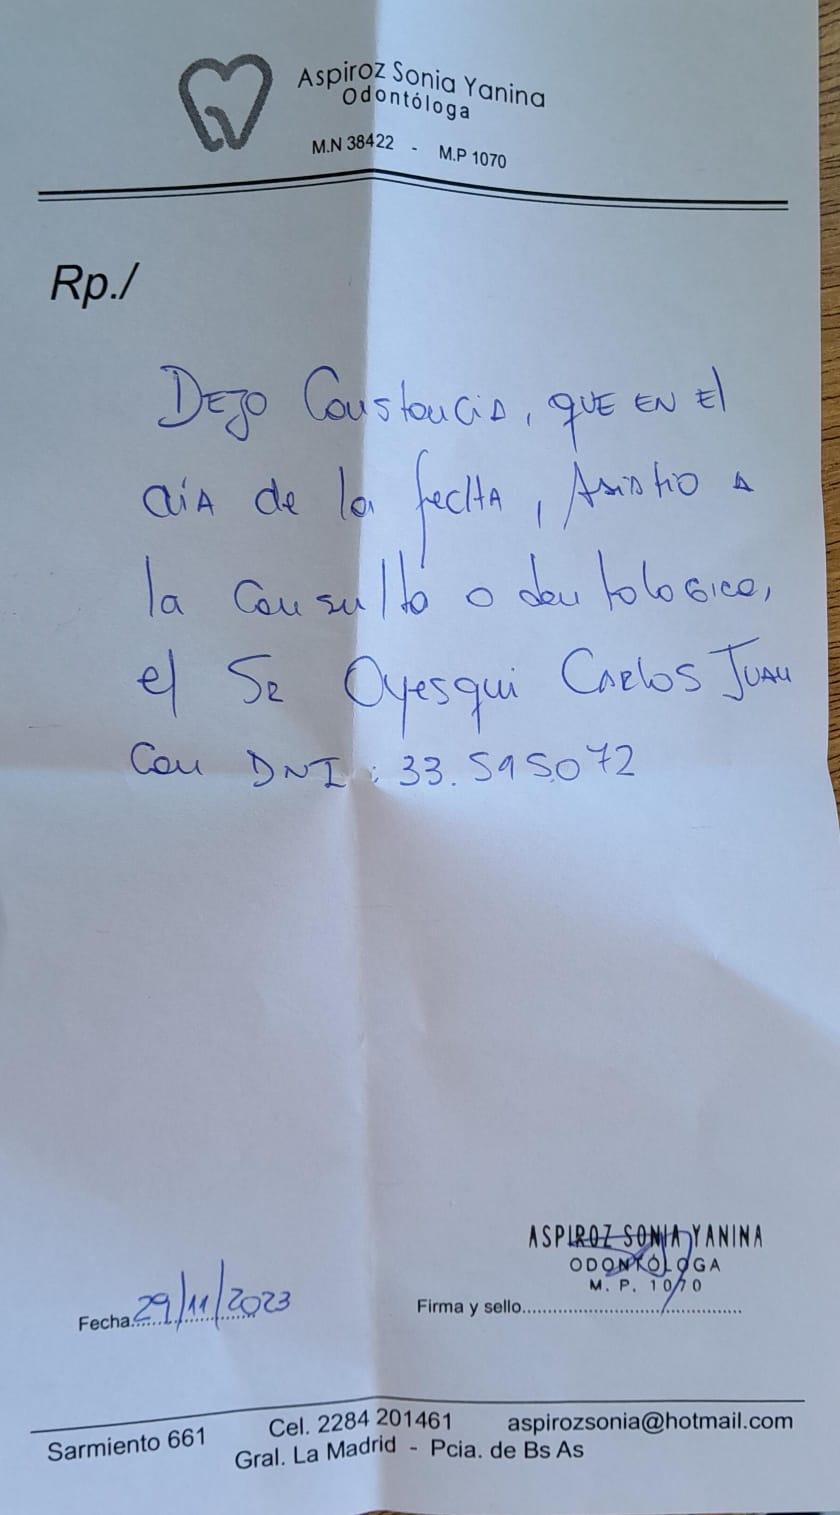 Aspiroz Sonia Yanina
Odontóloga
M.N 38422 - M.P 1070
Rp./
DEJO Constancia, QUE EN El
díA de la fecHA, Asistio A
la Consulta odontologica,
el SR Oyesqui CARlos JUAN
Con DNI: 33.595.072
ASPIROZ SONIA YANINA
ODONTÓLOGA
M. P. 1070
Fecha 29/11/2023
Firma y sello
Sarmiento 661 Cel. 2284 201461 aspirozsonia@hotmail.com
Gral. La Madrid - Pcia. de Bs As